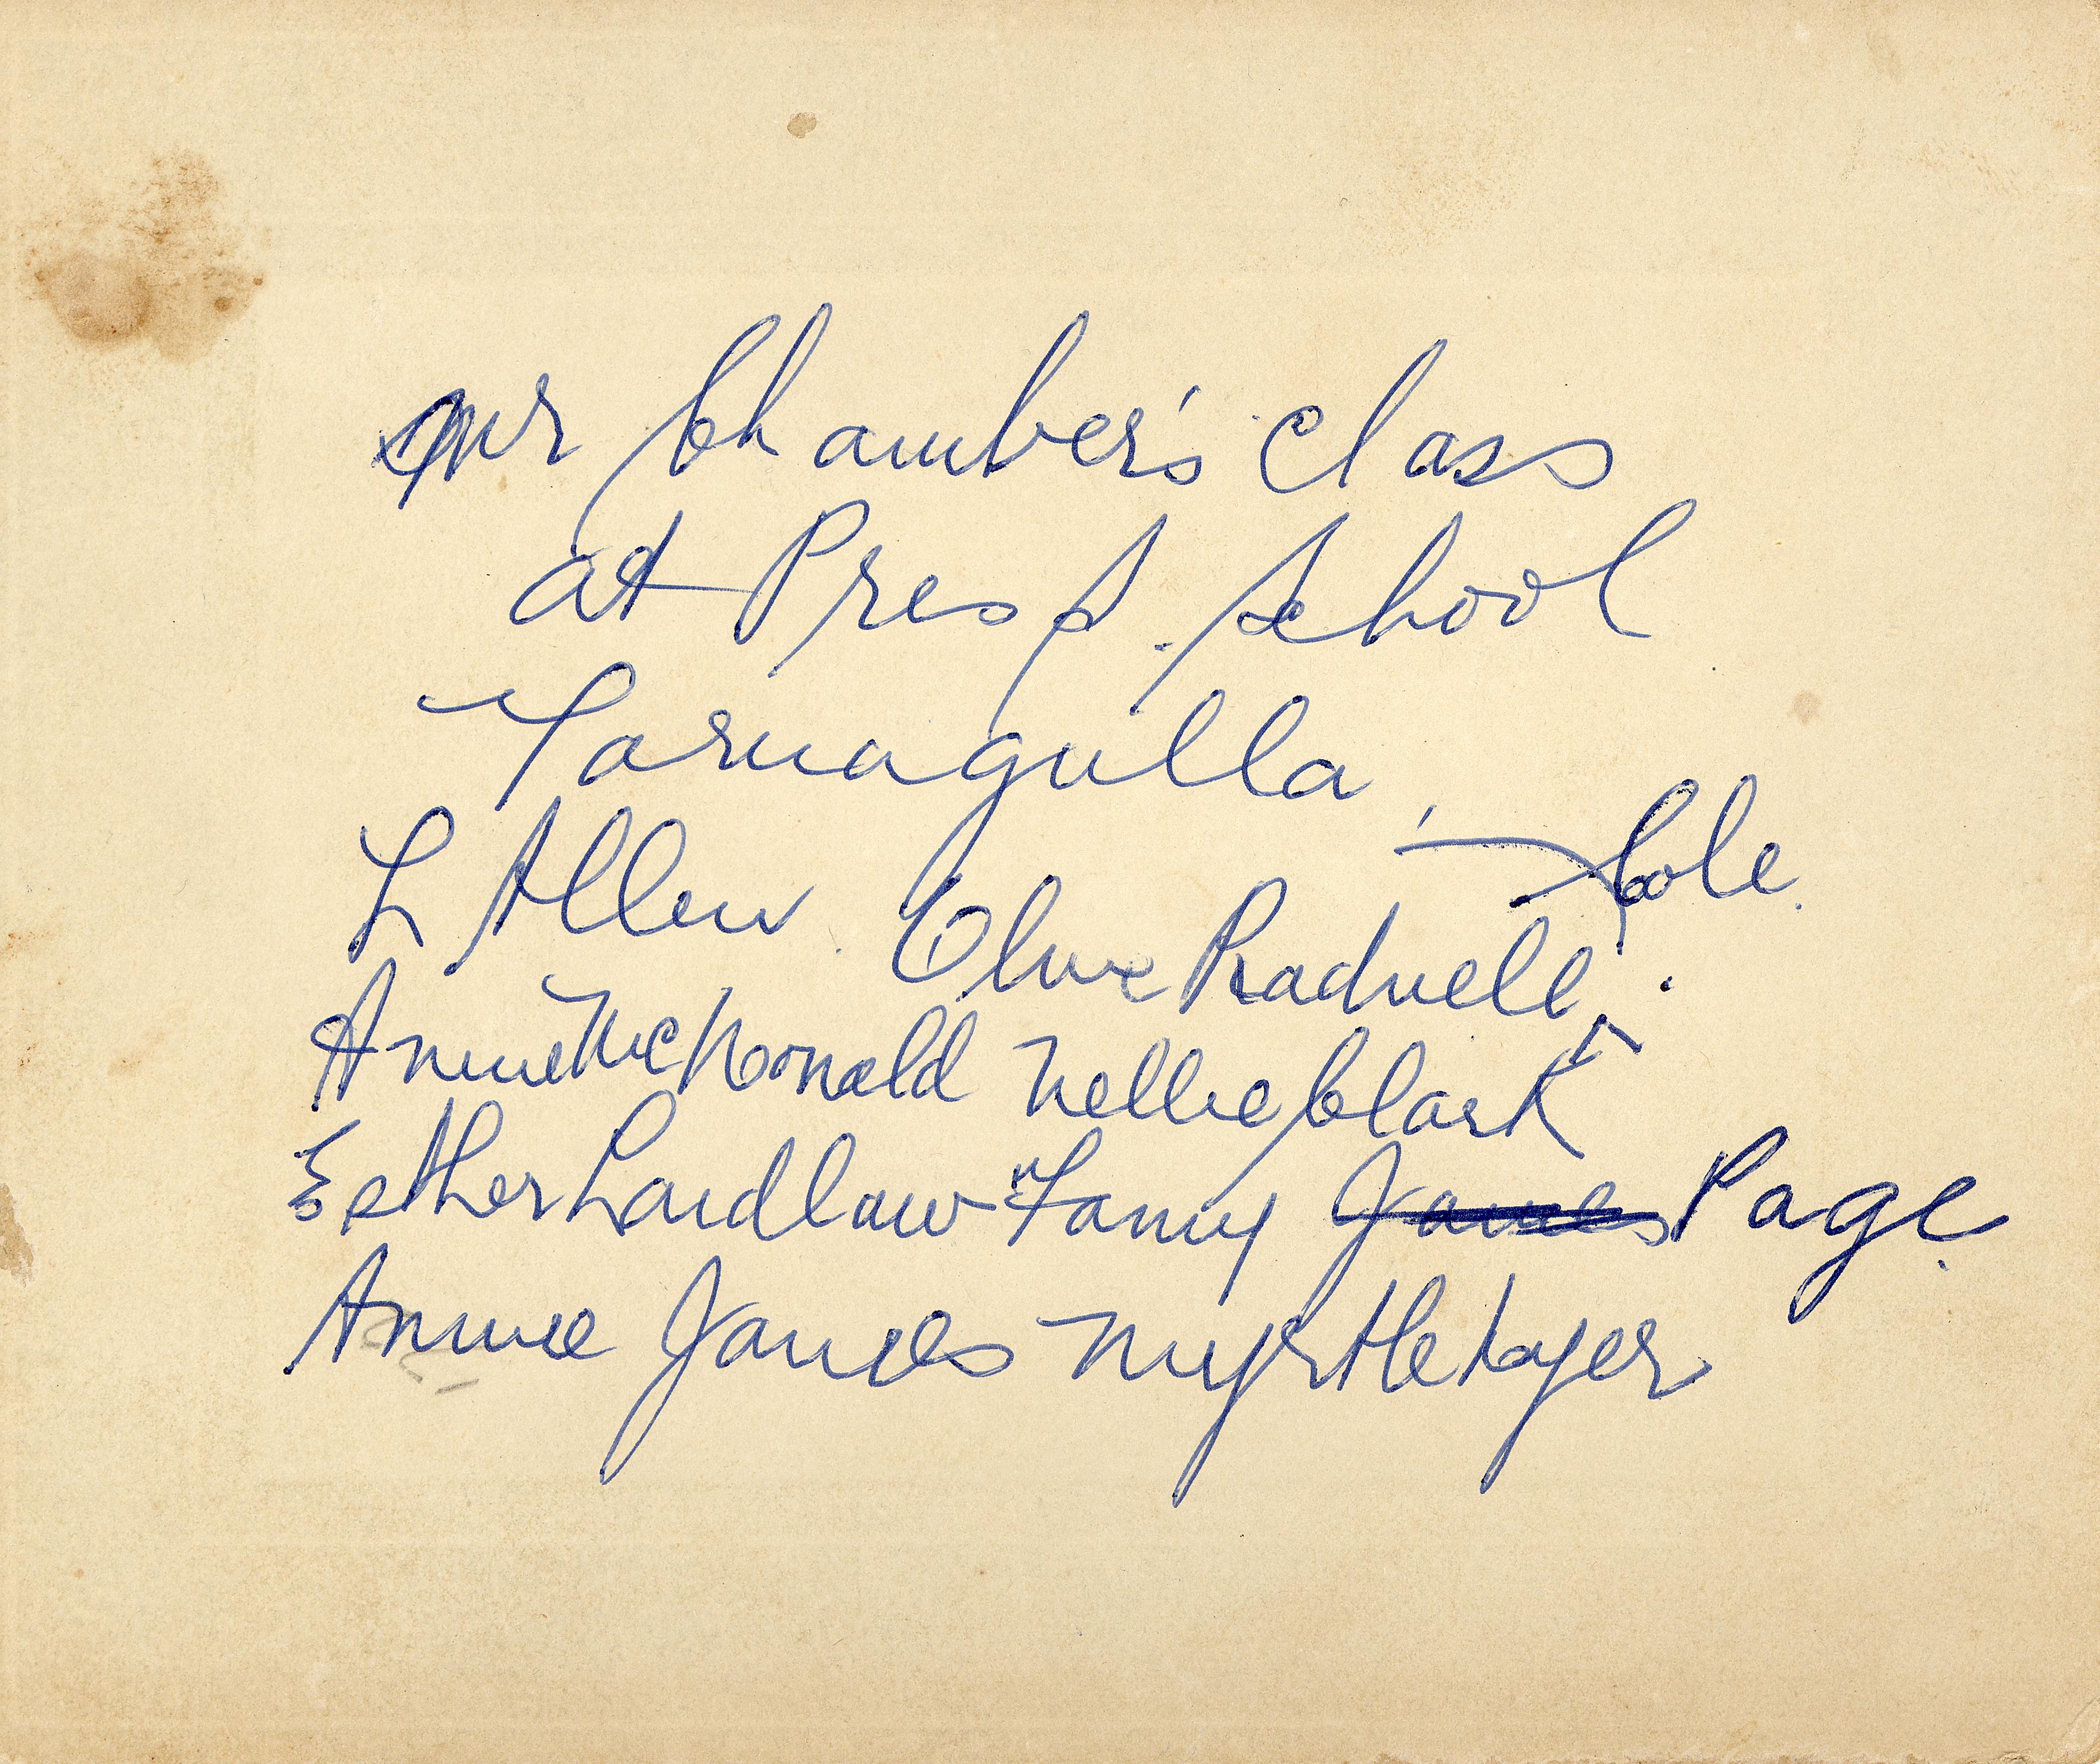 Mr Chamber's Class
at Presp. School
Tarnagulla,
L Allen. Olive Radnell. Cole.
Annie McDonald Nellie Clark
Esther Laidlaw Fanny James Page.
Annie James Myrtle